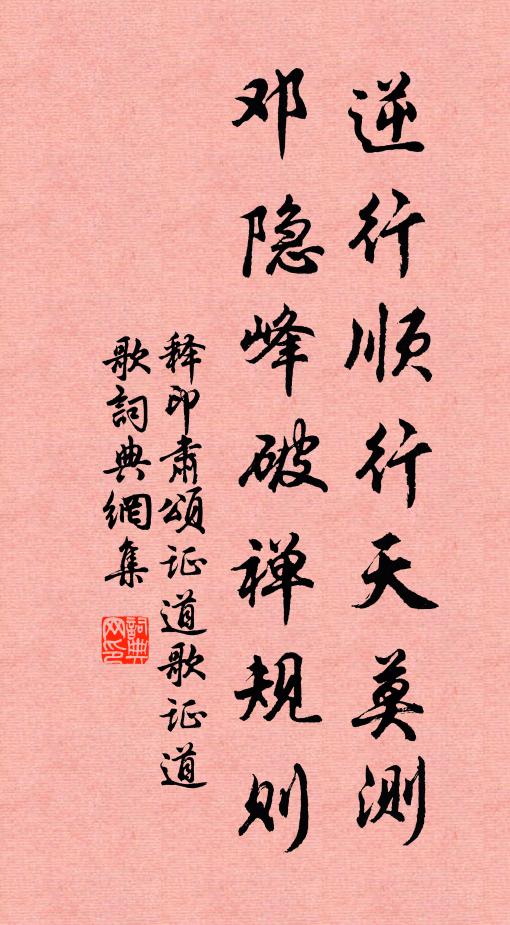 逆行顺行天莫测
邓隐峰破禅规则
释印肃颂证道歌证道
歌詞典網集
詞典网印